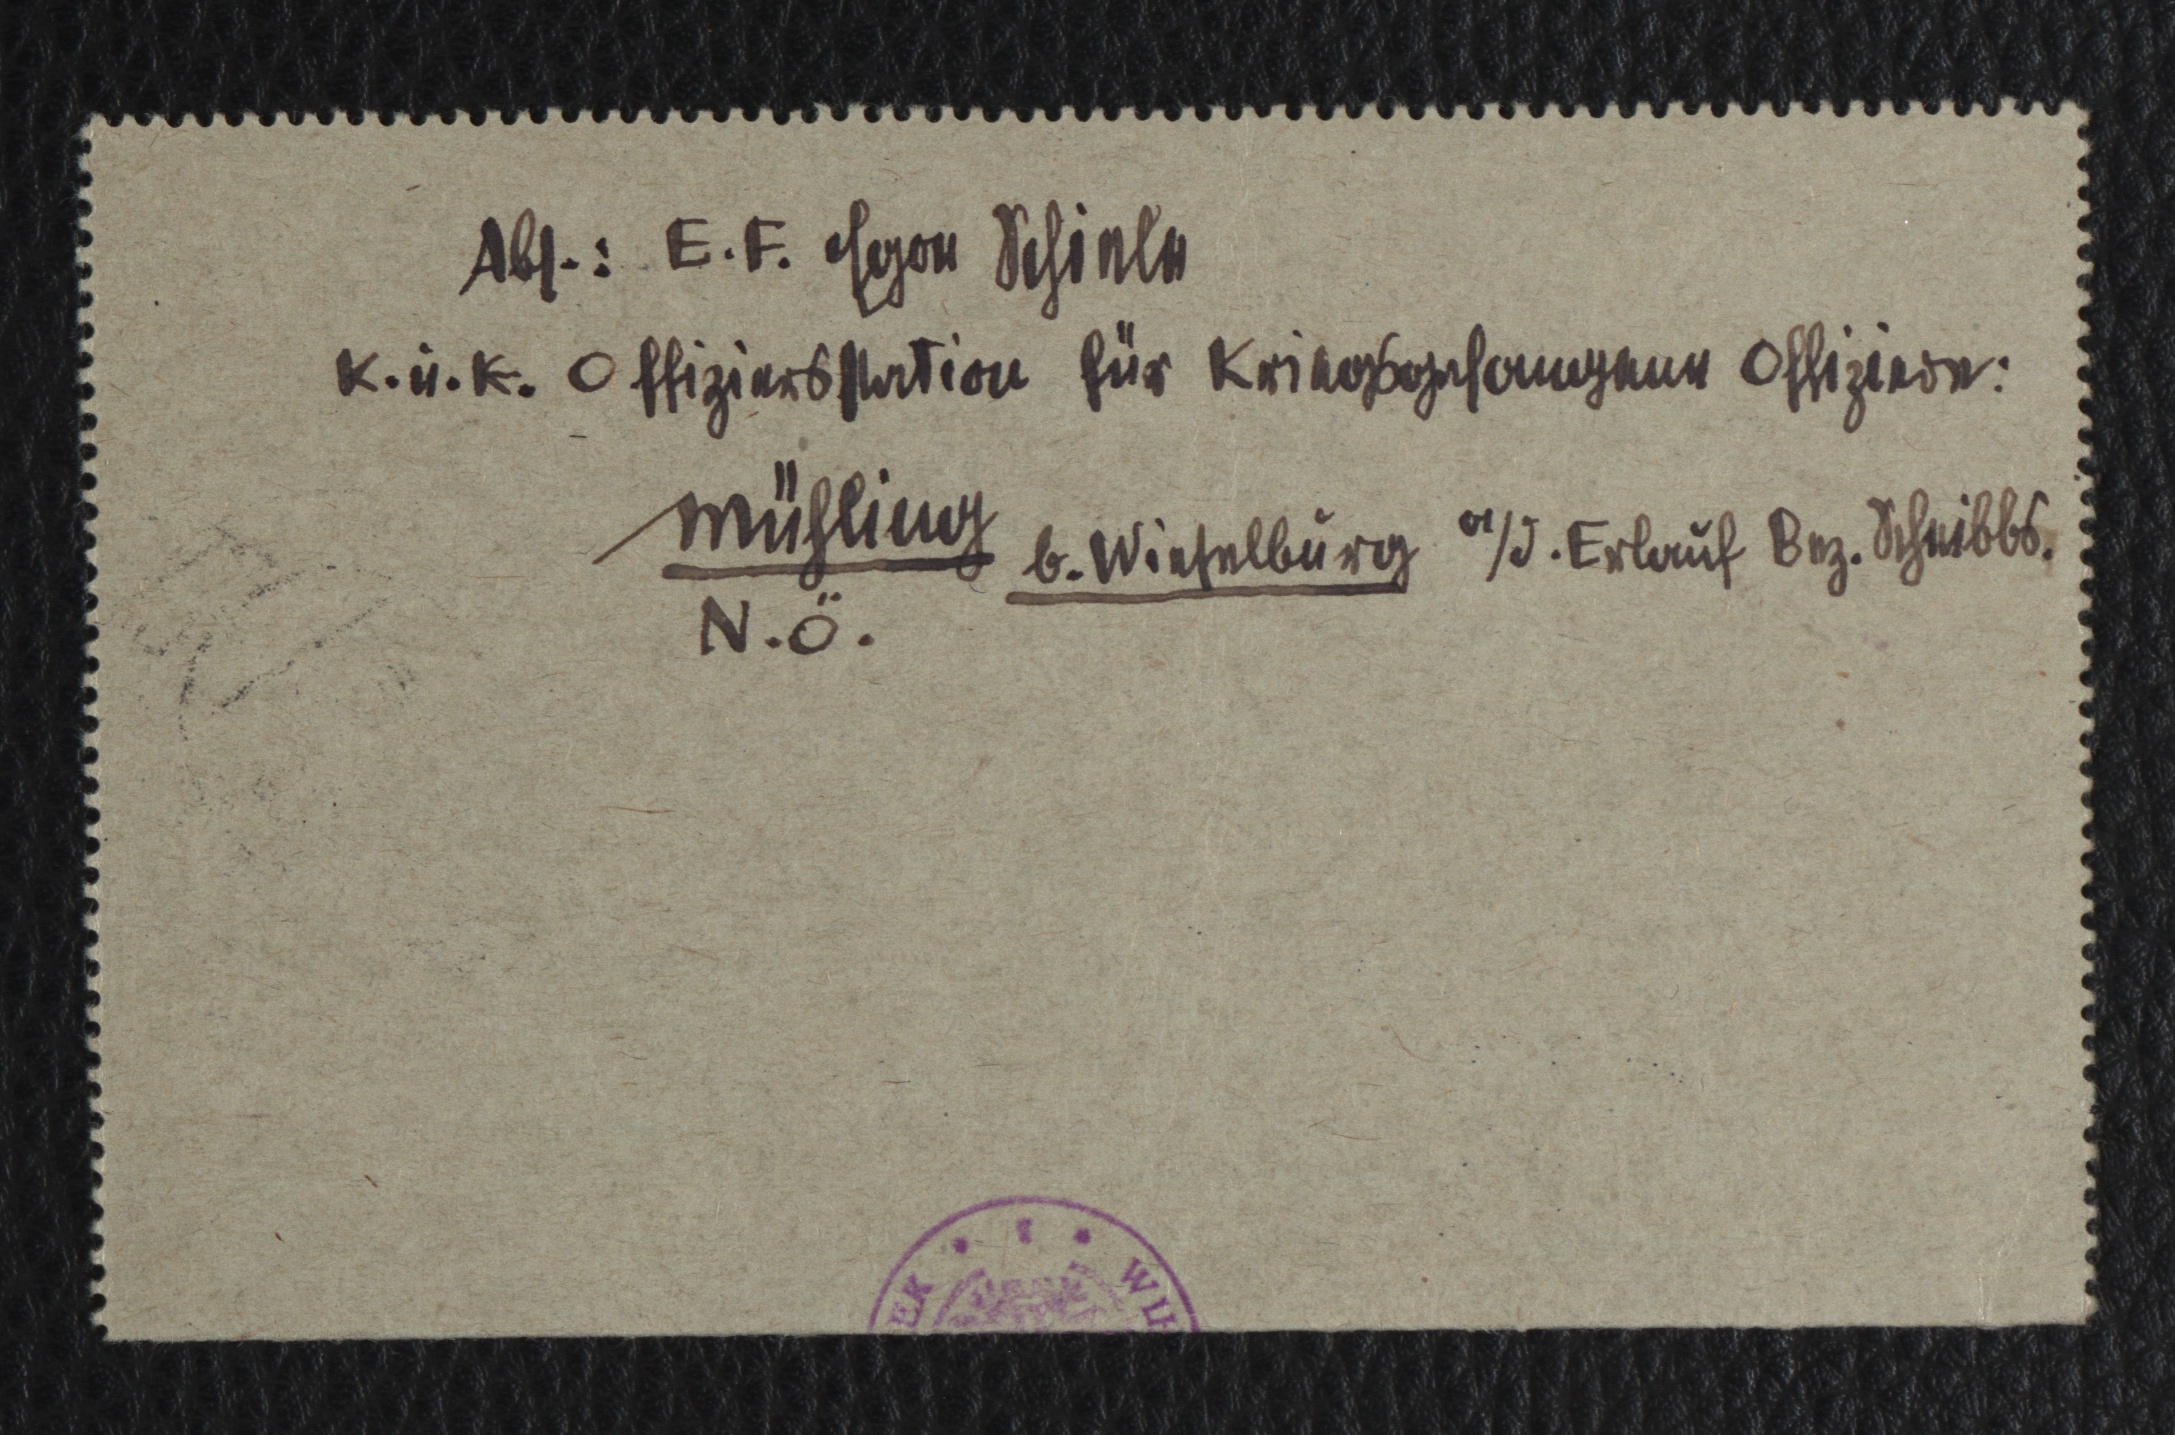 Abs.: E. F. Egon Schiele
K. u. K. Offiziersstation für Kriegsgefangene Offiziere:
Mühling b. Wieselburg a/d. Erlauf Bez. Scheibbs.
N. Ö.